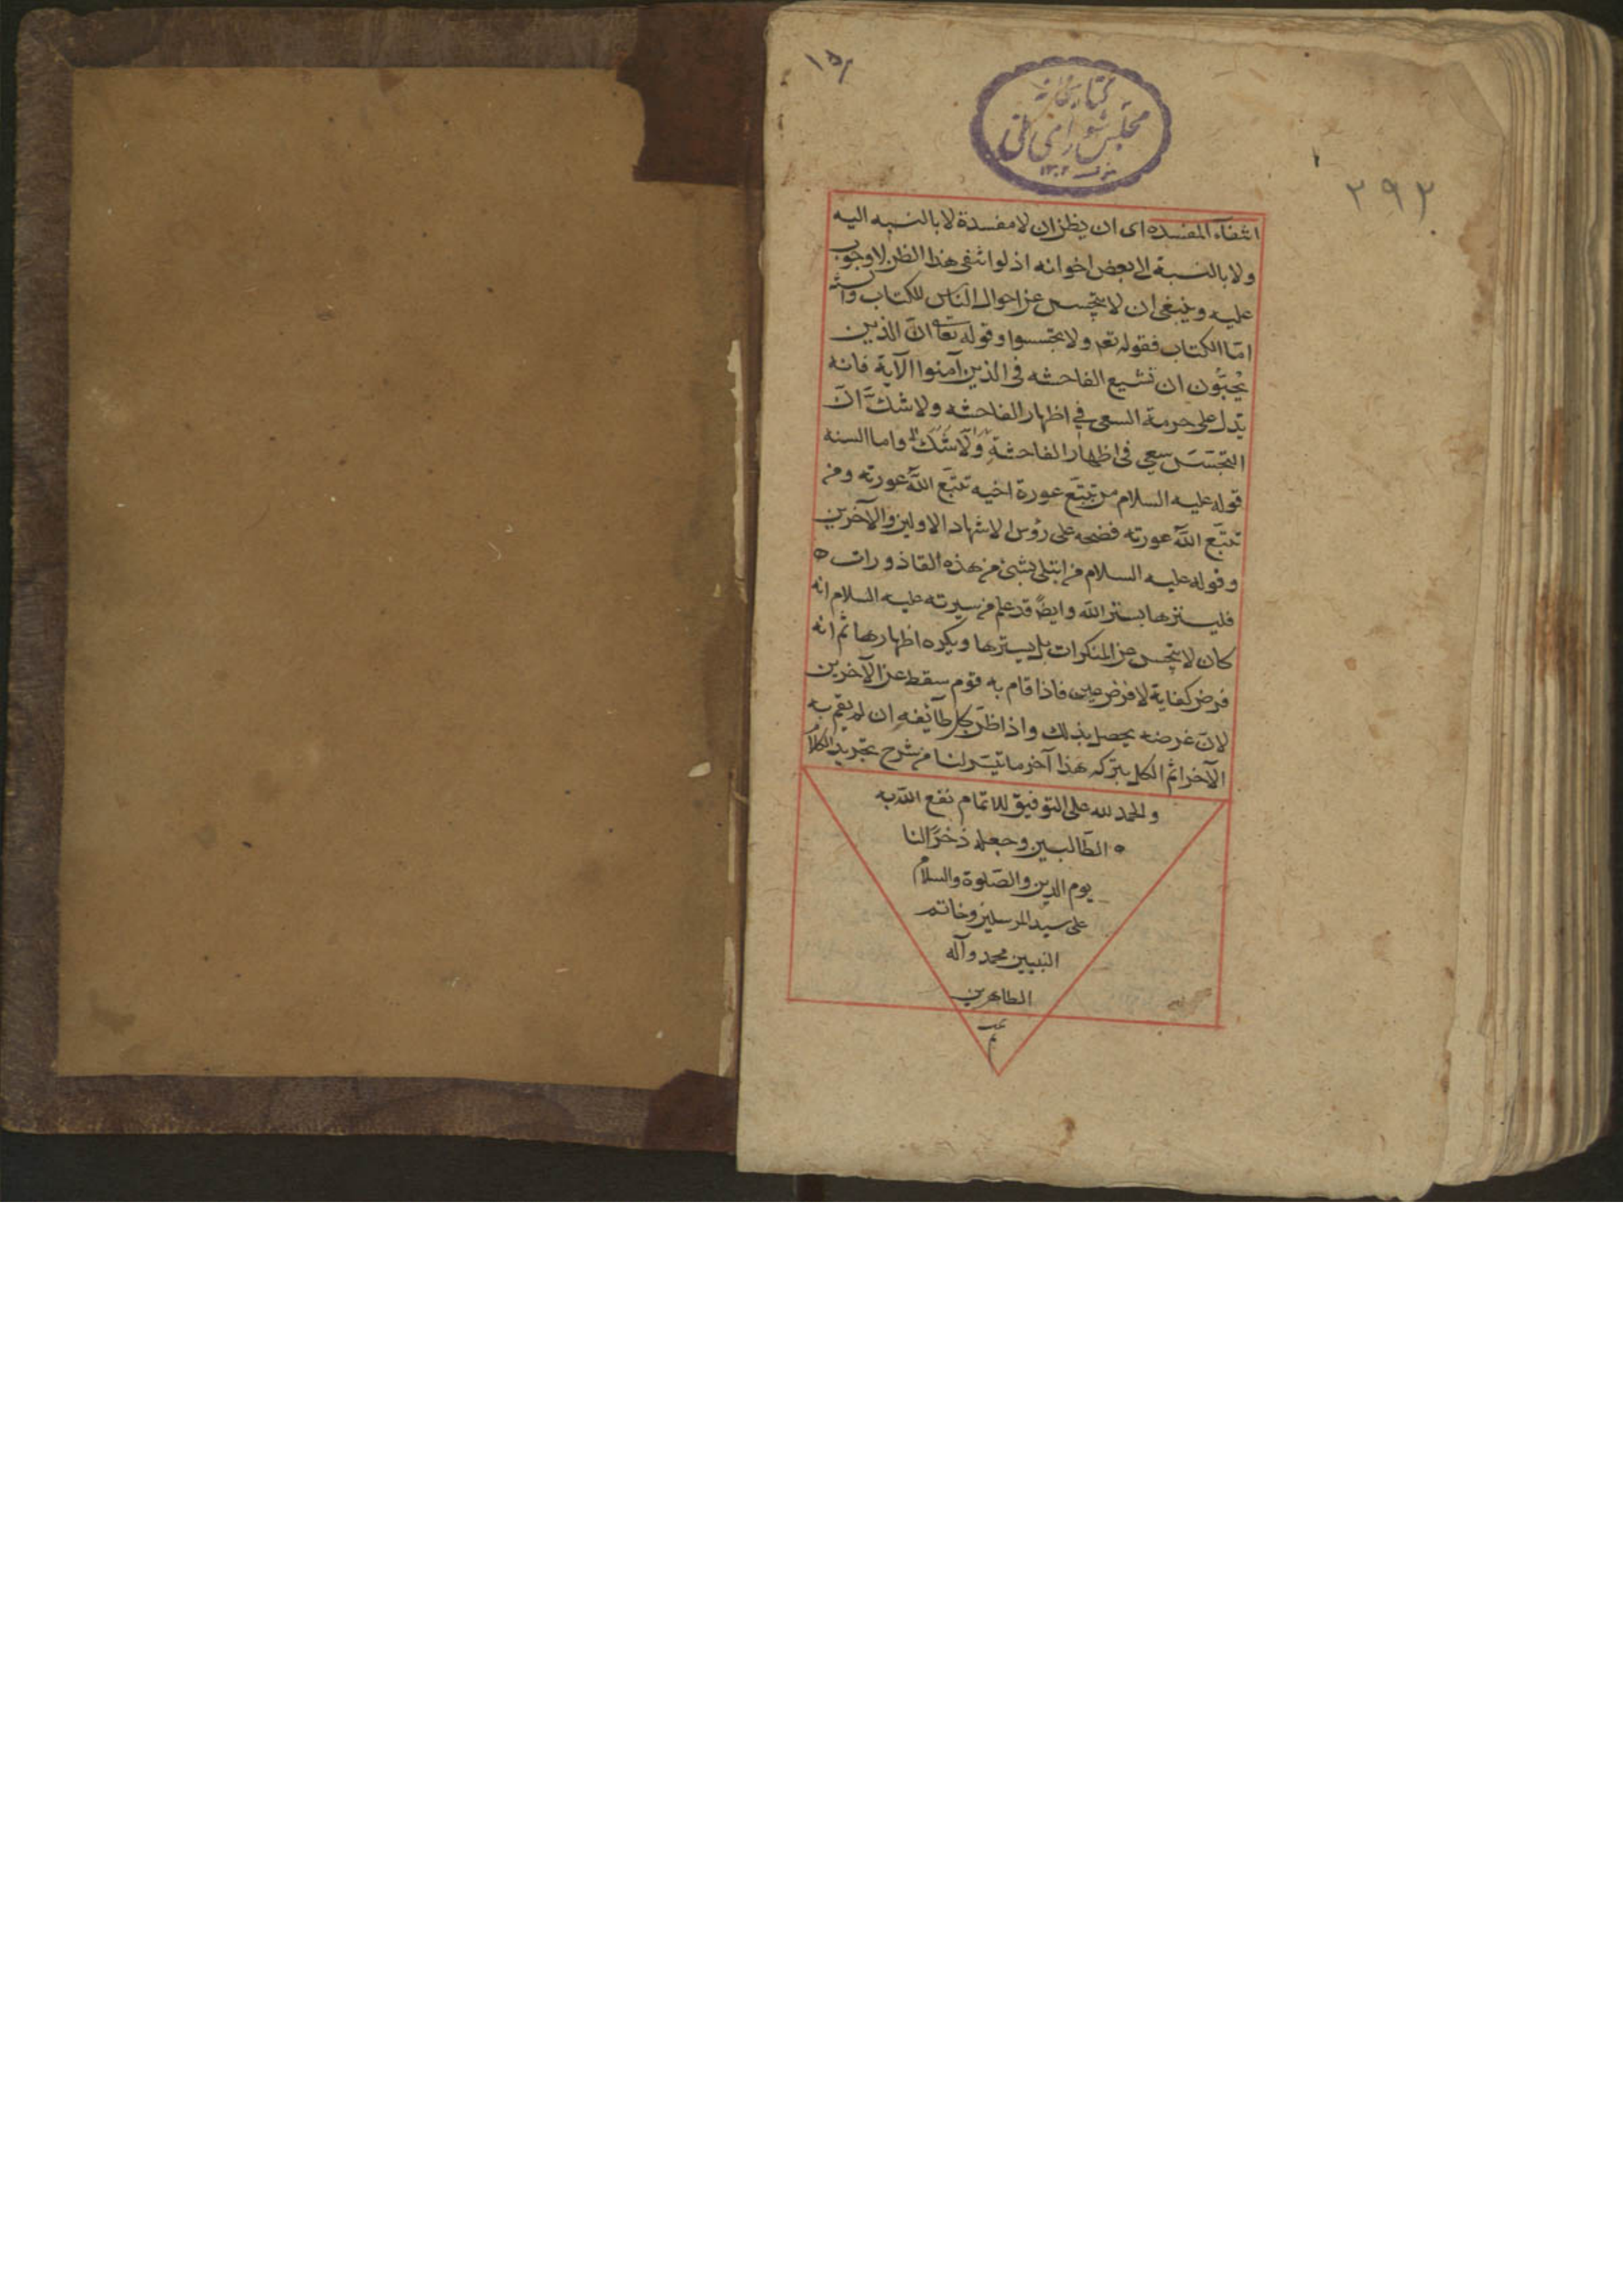 كتابخانه
مجلس شورای ملی
١٣٠٢
٢٩٢
انتفاء المفسده ای ان يظن ان لا مفسدة لا بالنسبه اليه
ولا بالنسبة الى بعض اخوانه اذ لو انتفى هذا الظن لا وجوب
عليه وينبغى ان لا يتجسس عن احوال الناس للكتاب والسنه
امّا الكتاب فقوله تعم ولا تجسسوا وقوله تعالى انّ الذين
يُحبّون ان تشيع الفاحشه فى الذين آمنوا الآية فانه
يدل على حرمة السعى فى اظهار الفاحشه ولا شكّ انّ
التجسّس سعى فى اظهار الفاحشةِ ولا شك واما السنه
قوله عليه السلام من تتبّع عورة اخيه تتبّع اللّه عورته ومن
تتبّع اللّه عورته فضحه على رؤس الاشهاد الاولين والآخرين
وقوله عليه السلام من ابتلى بشئ من هذه القاذورات ه
فليسترها بستر اللّه وايضً قد علم من سيرته عليه السلام انه
كان لا يتجسس عن المنكرات بل يسترها ويكره اظهارها ثم انه
فرض كفاية لا فرض عين فاذا قام به قوم سقط عن الآخرين
لانّ غرضه يحصل بذلك واذا ظنّ كل طائفه ان لم يقم به
الآخر اثم الكل بتركه هذا آخر ما تيسّر لنا من شرح تجريد الكلام
والحمد لله على التوفيق للاتمام نفع اللّه به
ه الطّالبين وجعله ذخرًا لنا
يوم الدين والصّلوة والسلام
على سيد المرسلين وخاتم
النبيين محمد وآله
الطاهرين
تم